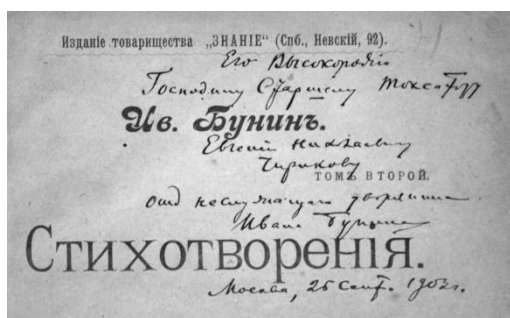 Изданіе товарищества „ЗНАНІЕ“ (Спб., Невскій, 92).
Его Высокородію
Господину Старшему
Ив. Бунинъ.
Евгенію Николаевичу
Чирикову
ТОМЪ ВТОРОЙ.
отъ неслужащаго дворянина
Ивана Бунина
Стихотворенія.
Москва, Сент.